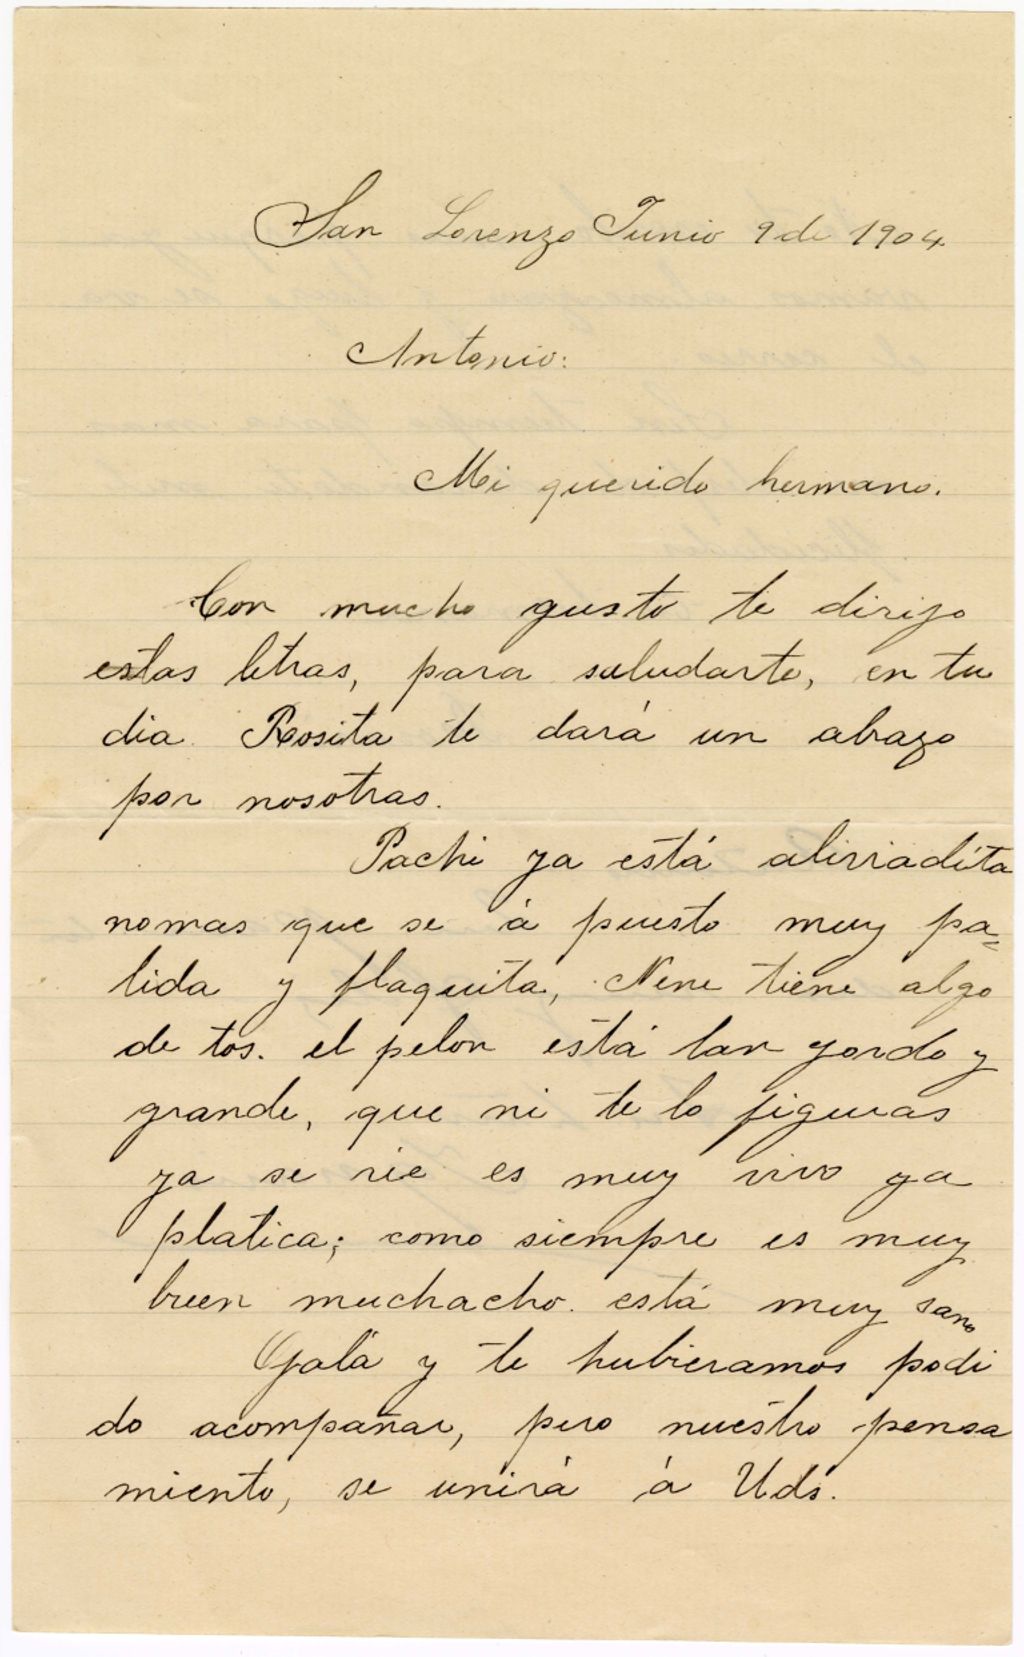 San Lorenzo Junio 9 de 1904
Antonio:
Mi querido hermano.
Con mucho gusto te dirijo
estas letras, para saludarte, en tu
dia Rosita te dará un abrazo
por nosotras.
Pachi ya está aliviadita
nomas que se á puesto muy pa=
lida y flaquita, Nene tiene algo
de tos. el pelon está tan gordo y
grande, que ni te lo figuras
ya se rie es muy vivo ya
platica; como siempre es muy
buen muchacho. está muy sano
Ojalá y te hubieramos podi
do acompañar, pero nuestro pensa
miento, se unirá á Uds.